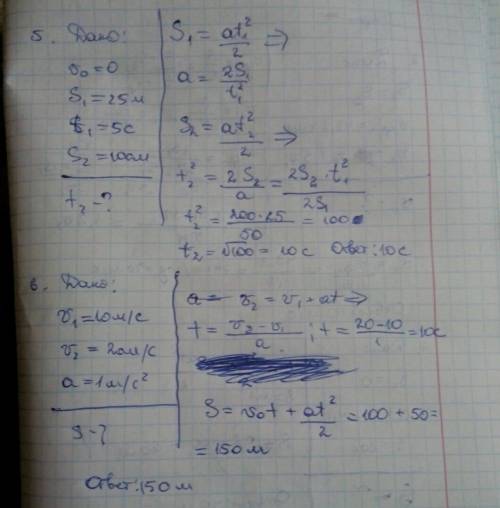 5. Дано:
v₀=0
S₁=25м
t₁=5с
S₂=100м
t₂-?
S₁ = at₁²/2 ⇒
a = 2S₁/t₁²
S₂ = at₂²/2 ⇒
t₂² = 2S₂/a = 2S₂·t₁²/2S₁
t₂² = 200·25/50 = 100
t₂ = √100 = 10с Ответ: 10с
6. Дано:
v₁=10м/с
v₂=20м/с
a=1м/с²
S-?
v₂ = v₁+at ⇒
t = v₂-v₁/a ; t = 20-10/1 = 10с
S = v₀t + at²/2 = 100+50=
= 150м
Ответ: 150м